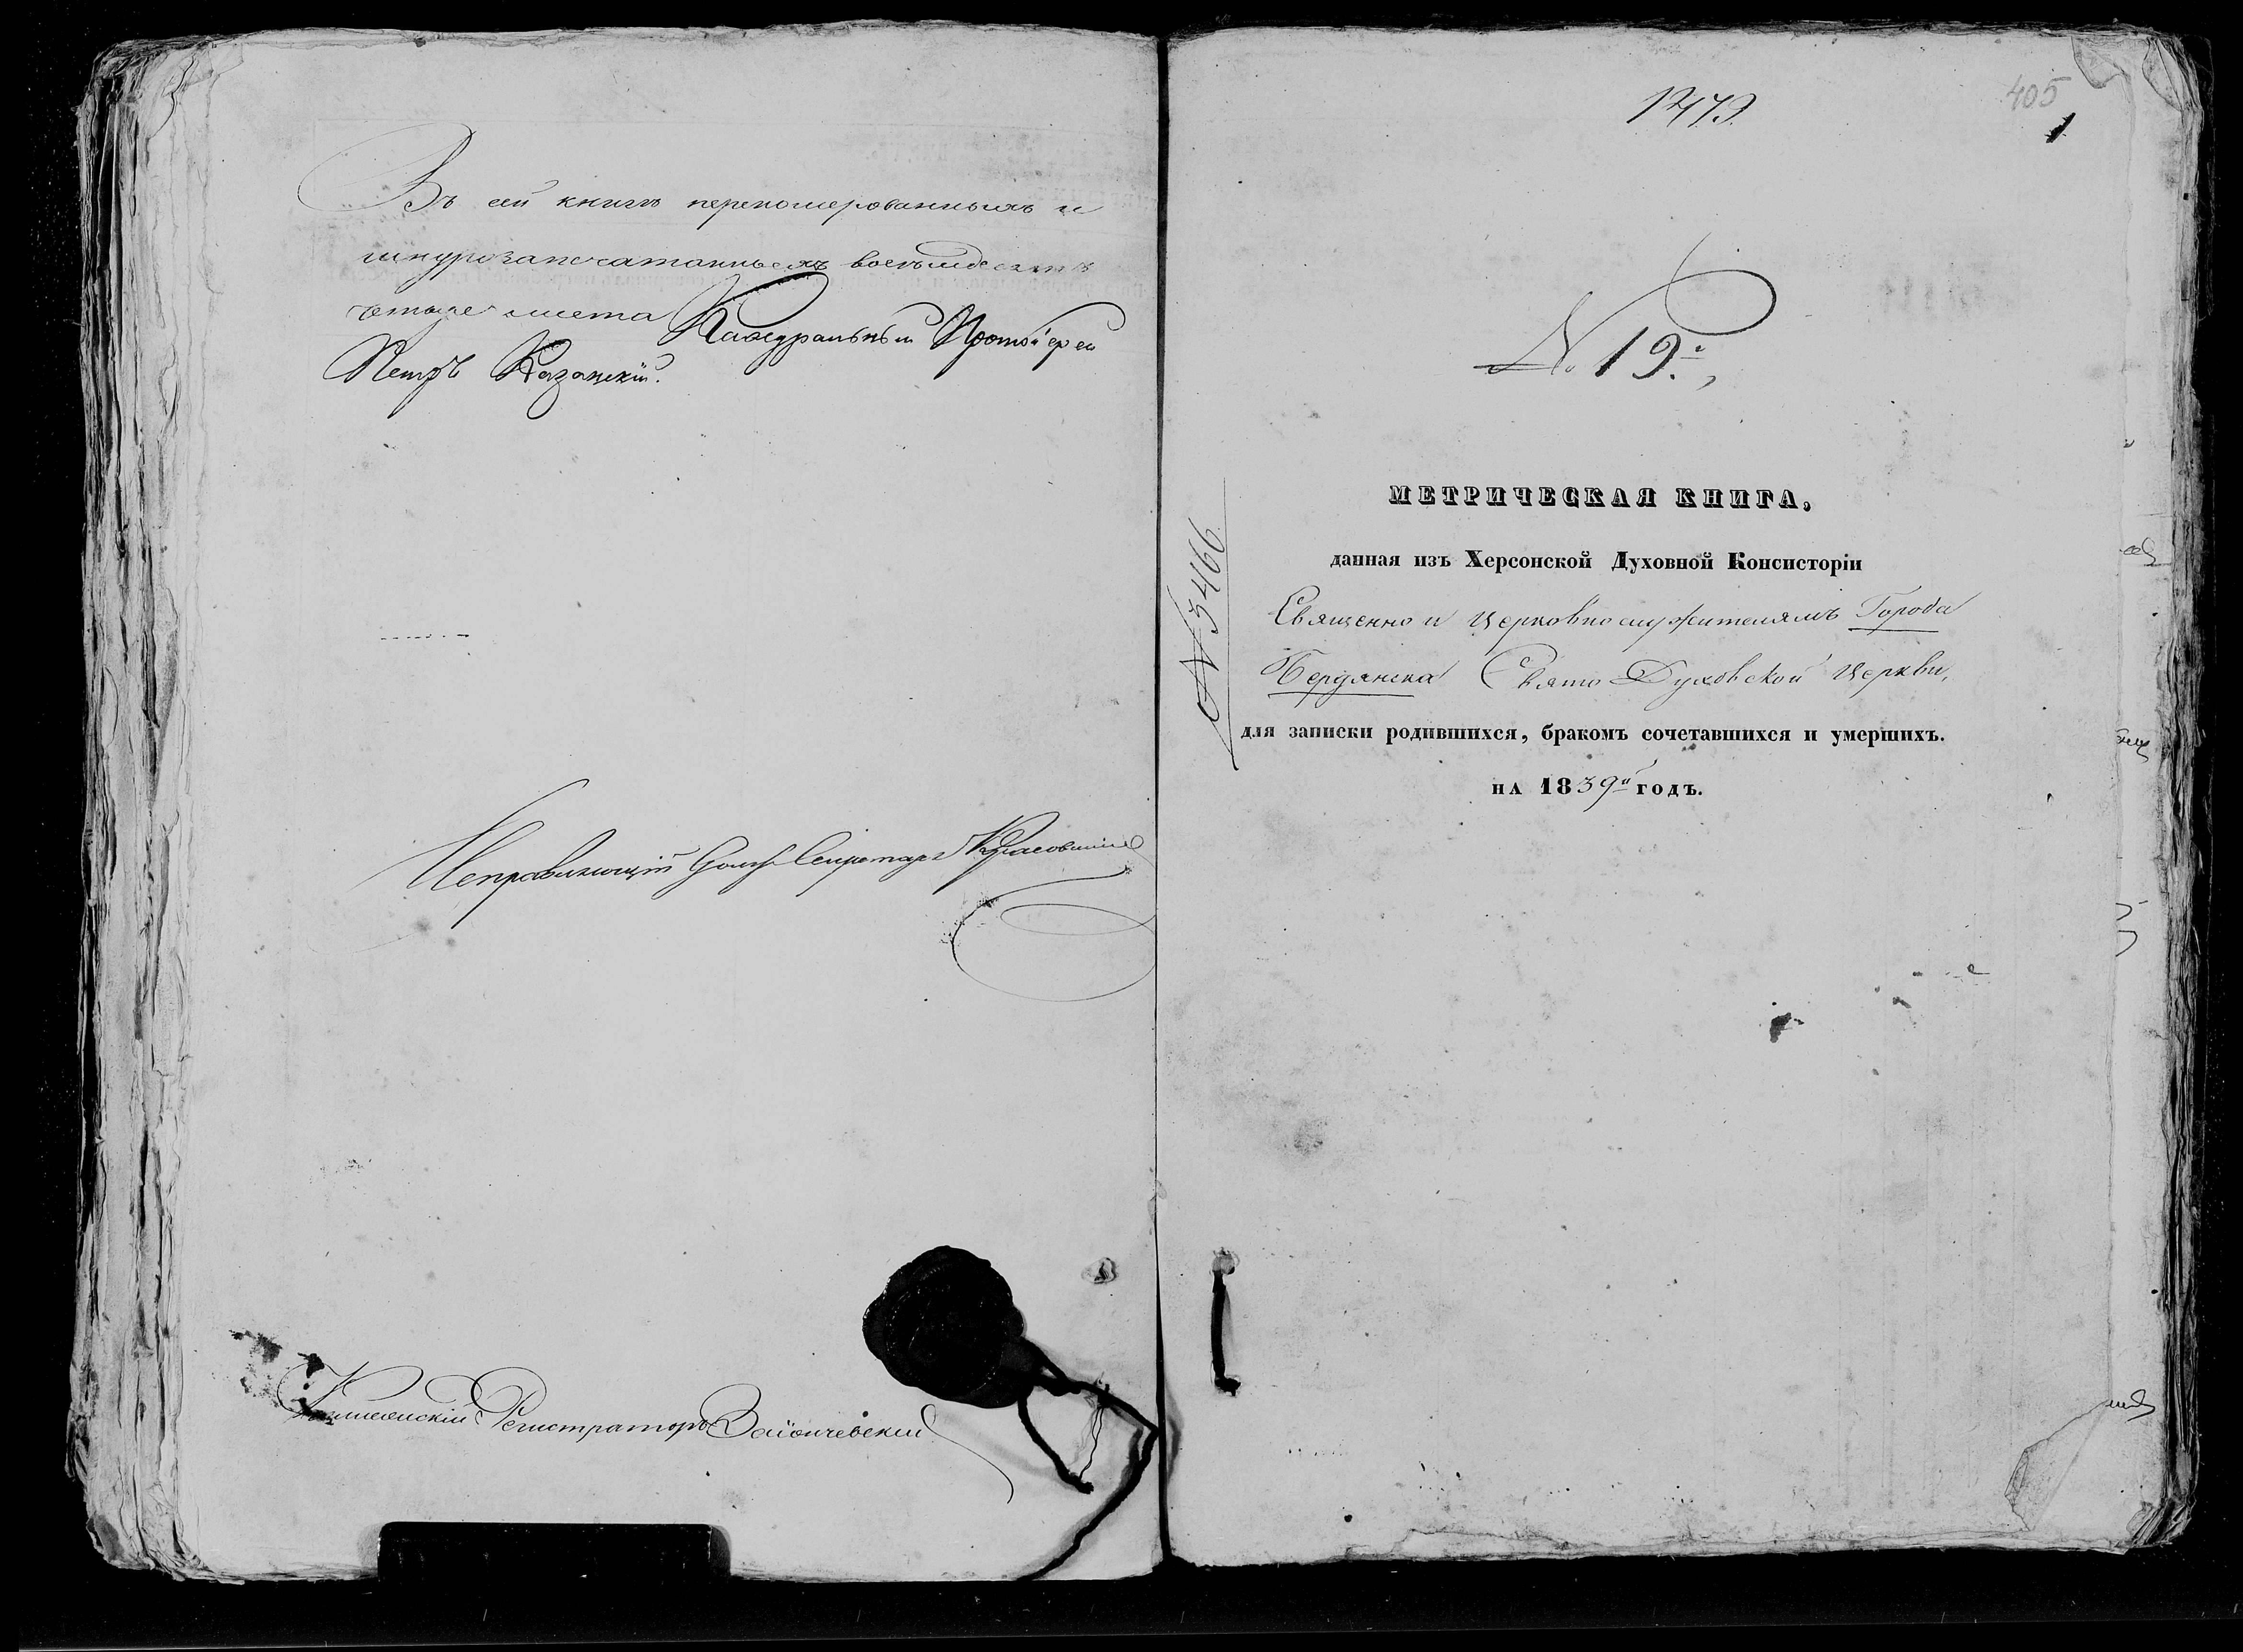 Въ сей книгѣ перенумерованныхъ и
шнурозапечатанныхъ восемьдесятъ
четыре листа Каѳедральный Протоіерей
Петръ Казанскій.
Исправляющій Секретарь
Регистраторъ Заіончевскій
405
1
№ 19й
№ 3466
МЕТРИЧЕСКАЯ КНИГА,
данная изъ Херсонской Духовной Консисторіи
Священно и церковнослужителямъ Города
Бердянска Свято Духовской Церкви,
для записки родившихся, бракомъ сочетавшихся и умершихъ.
НА 1839й ГОДЪ.